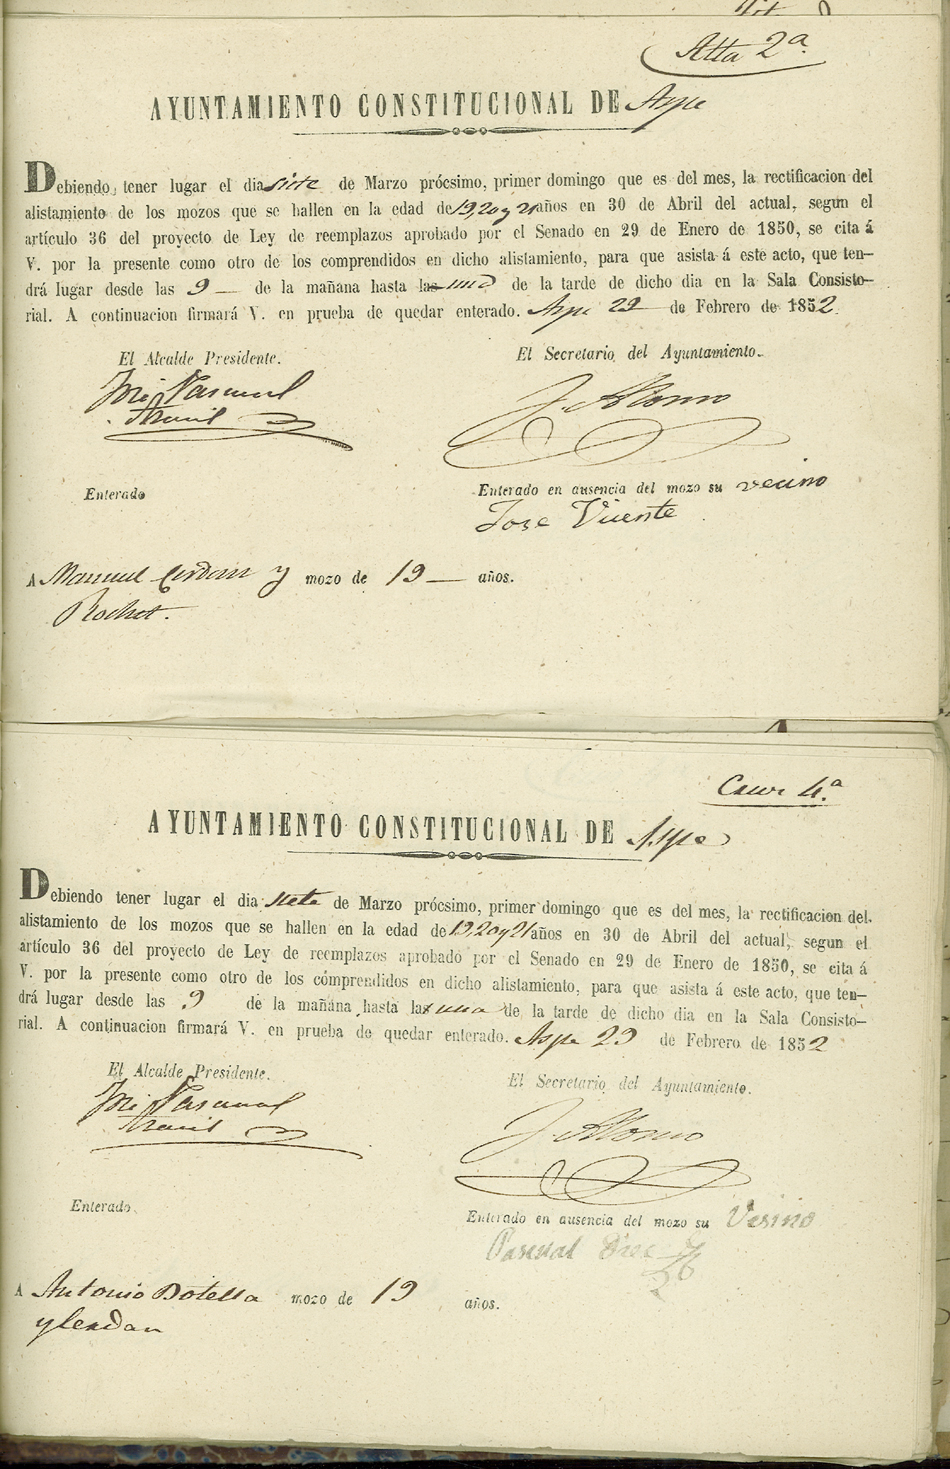 Alta 2ª
AYUNTAMIENTO CONSTITUCIONAL DE Aspe
Debiendo tener lugar el dia siete de Marzo prócsimo, primer domingo que es del mes, la rectificacion del
alistamiento de los mozos que se hallen en la edad de 19, 20 y 21 años en 30 de Abril del actual, segun el
artículo 36 del proyecto de Ley de reemplazos aprobado por el Senado en 29 de Enero de 1850, se cita á
V. por la presente como otro de los comprendidos en dicho alistamiento, para que asista á este acto, que ten–
drá lugar desde las 9 — de la mañana hasta las una de la tarde de dicho dia en la Sala Consisto–
rial. A continuacion firmará V. en prueba de quedar enterado. Aspe 29 de Febrero de 1852.
El Alcalde Presidente. El Secretario del Ayuntamiento.
José Pascual J. Alonso
Enterado Enterado en ausencia del mozo su vecino
Jose Vicente
A Manuel Cerdan y mozo de 19 — años.
Rochet.
Casas 4.ª
AYUNTAMIENTO CONSTITUCIONAL DE Aspe
Debiendo tener lugar el dia siete de Marzo prócsimo, primer domingo que es del mes, la rectificacion del
alistamiento de los mozos que se hallen en la edad de 19, 20 y 21 años en 30 de Abril del actual, segun el
artículo 36 del proyecto de Ley de reemplazos aprobado por el Senado en 29 de Enero de 1850, se cita á
V. por la presente como otro de los cómprendidos en dicho alistamiento, para que asista á este acto, que ten–
drá lugar desde las 9 de la mañana hasta las una de la tarde de dicho dia en la Sala Consisto–
rial. A continuacion firmará V. en prueba de quedar enterado. Aspe 29 de Febrero de 1852
El Alcalde Presidente. El Secretario del Ayuntamiento.
José Pascual J. Alonso
Enterado Enterado en ausencia del mozo su Vesino
Pascual
A Antonio Botella mozo de 19 años.
y Cerdan